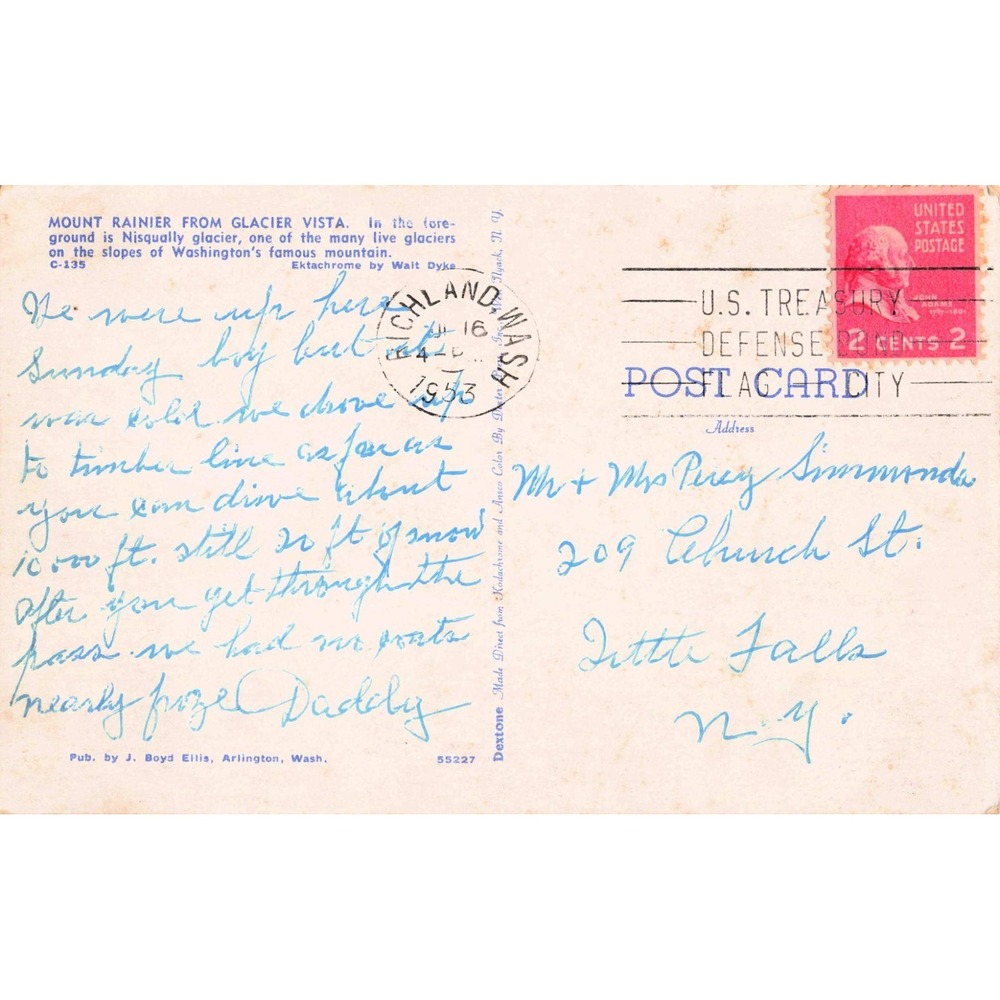 MOUNT RAINIER FROM GLACIER VISTA. In the fore-
ground is Nisqually glacier, one of the many live glaciers
on the slopes of Washington's famous mountain.
C-135 Ektachrome by Walt Dyke
We were up here
Sunday boy but it
was cold we drove up
to timber line as far as
you can drive about
10000 ft. still 20 ft of snow
after you get through the
pass we had no coats
nearly froze Daddy
Pub. by J. Boyd Ellis, Arlington, Wash. 55227
Dextone Made Direct from Kodachrome and Ansco Color By Dexter Nyack, N. Y.
RICHLAND, WASH
16
4
1953
UNITED
STATES
POSTAGE
JOHN
ADAMS
1797-1801
2 CENTS 2
U.S. TREASURY
DEFENSE BOND
FLAG CITY
POST CARD
Address
Mr + Mrs Percy Simmonds
209 Church St.
Little Falls
N.Y.